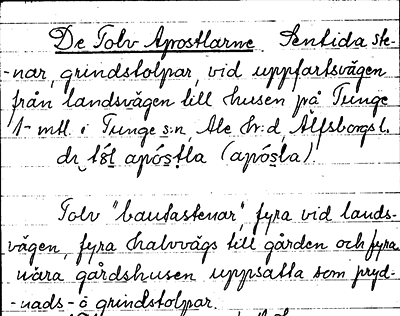 De Tolv Apostlarne. Sentida ste-
-nar, grindstolpar, vid uppfartsvägen
från landsvägen till husen på Tunge
1-mtl. i Tunge s:n, Ale hr:d Älfsborgs l.
apóstla (apósla).
Tolv "bautastenar", fyra vid lands-
vägen, fyra halvvägs till gården och fyra
nära gårdshusen uppsatta som pryd-
-nads- o grindstolpar.